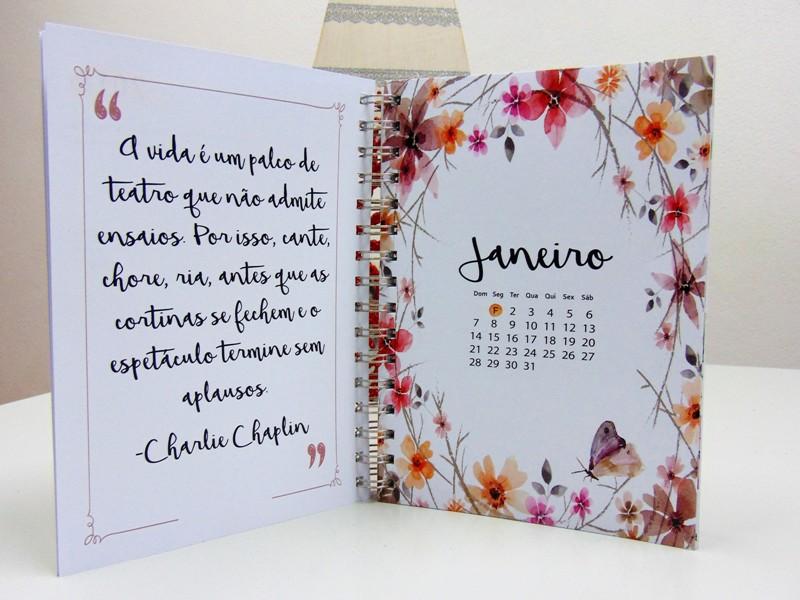 “
A vida é um palco de
teatro que não admite
ensaios. Por isso, cante,
chore, ria, antes que as
cortinas se fechem e o
espetáculo termine sem
aplausos.
-Charlie Chaplin
”
Janeiro
Dom Seg Ter Qua Qui Sex Sáb
F 2 3 4 5 6
7 8 9 10 11 12 13
14 15 16 17 18 19 20
21 22 23 24 25 26 27
28 29 30 31